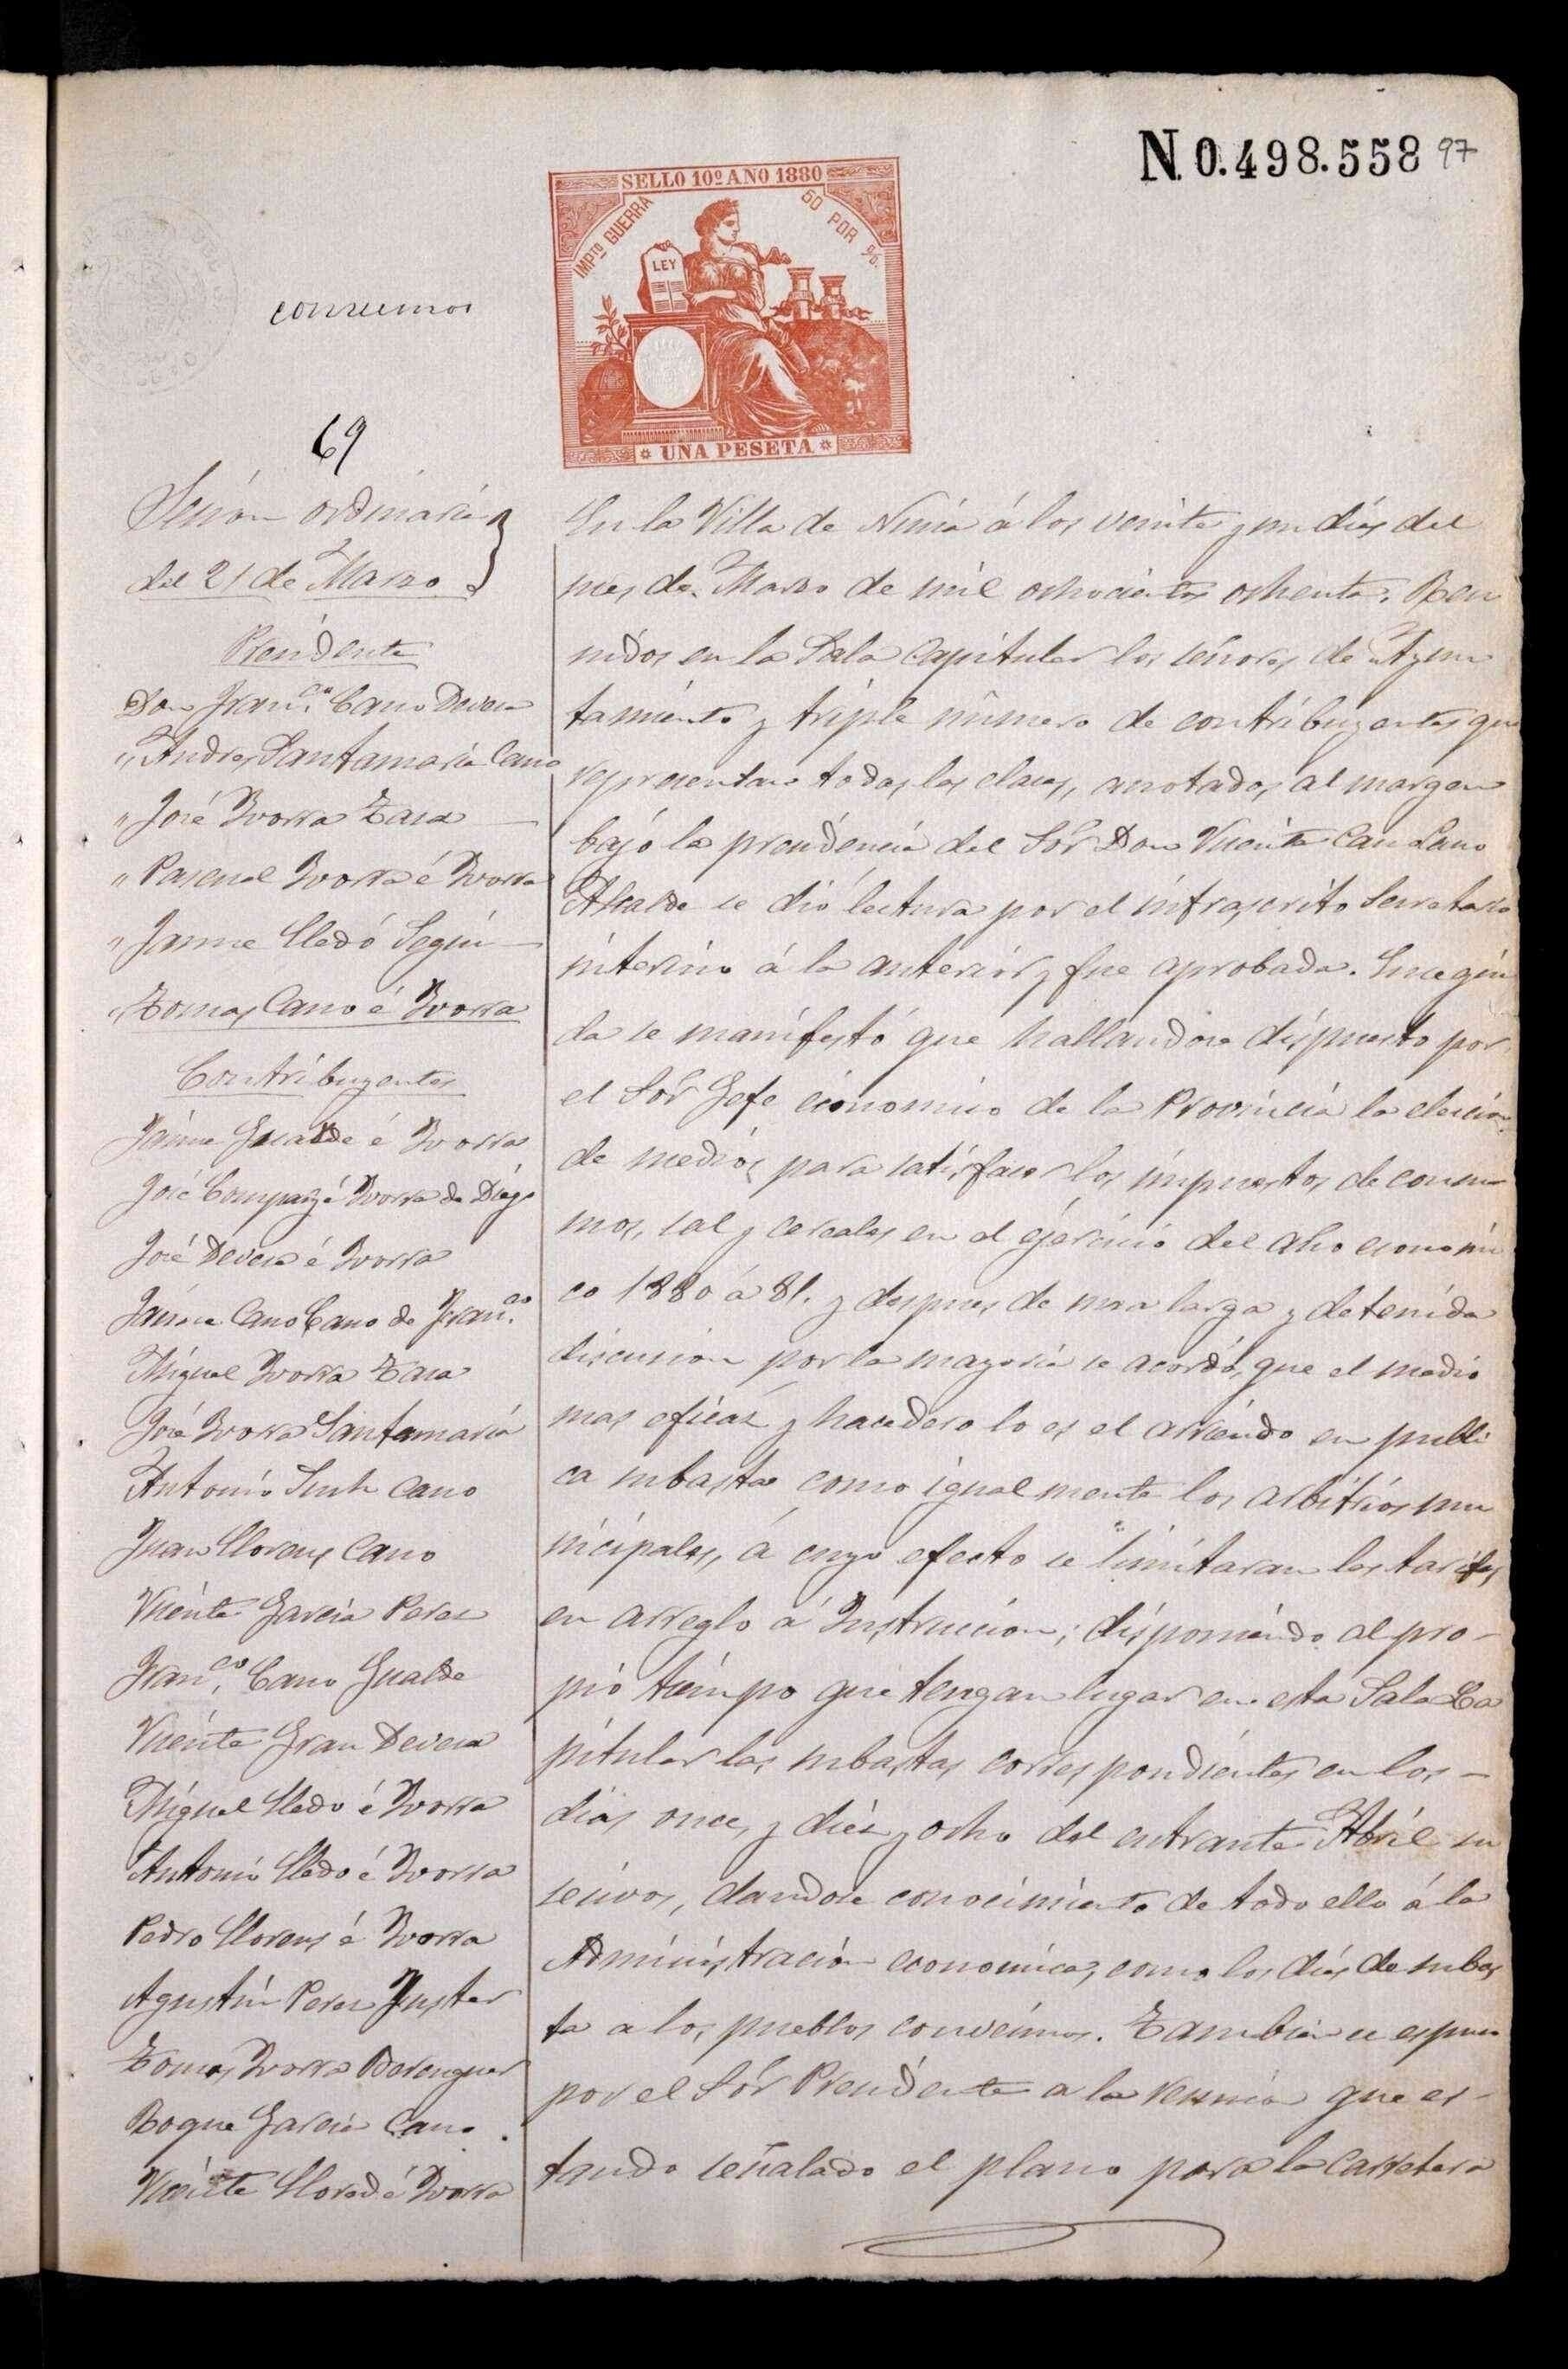 N. 0.498.558 97
SELLO 10º AÑO 1880
IMPTO GUERRA 50 POR %
LEY
UNA PESETA
consumos
69
Sesión ordinaria
del 21 de Marzo
Presidente
Don Franco. Cano Devesa
" Andres Santamaria Cano
" José Yvorra Zara
" Pascual Yvorra é Yvorra
" Jaime Lledó Seguí
" Tomas Cano é Yvorra
Contribuyentes
Jaime Gualde é Yvorra
José Compañ é Yvorra de Diego
José Devesa é Yvorra
Jaime Cano Cano de Franco.
Miguel Yvorra Zara
José Yvorra Santamaria
Antonio Such Cano
Juan Llorens Cano
Vicente Garcia Perez
Franco. Cano Gualde
Vicente Gran Devesa
Miguel Lledo é Yvorra
Antonio Lledo é Yvorra
Pedro Llorens é Yvorra
Agustin Perez Fuster
Tomas Yvorra Berenguer
Roque Garcia Cano.
Vicente é Yvorra
En la Villa de Nucia á los veinte y un dias del
mes de Marzo de mil ochocientos ochenta. Reu
nidos en la Sala capitular los señores de Ayun
tamiento y triple número de contribuyentes que
representan todas las clases, anotados al margen
bajó la presidencia del Sor Don Vicente Cano
Alcalde se dió lectura por el infrascrito Secretario
interino á la anterior y fue aprobada. Ensegui
da se manifestó que hallandose dispuesto por
el Sor Gefe económico de la Provincia la eleccion
de medios para satisfacer los impuestos de consu
mos, sal y cereales en el ejercicio del año economi
co 1880 á 81. y despues de una larga y detenida
discusion por la mayoria se acordó, que el medio
mas eficaz y hacedero lo es el arriendo en publi
ca subasta como igualmente los arbitrios mu
nicipales, á cuyo efecto se limitaran las tarifas
en arreglo á Instruccion; disponiendo al pro-
pio tiempo que tengan lugar en esta Sala Ca
pitular las subastas correspondientes en los -
dias once, y diez y ocho del entrante Abril su
cesivos, dandose conocimiento de todo ello á la
Administracion economica, como los dias de subas
ta a los pueblos convecinos. Tambien se espuso
por el Sor Presidente a la reunion que es-
tando señalado el plano para la Carretera